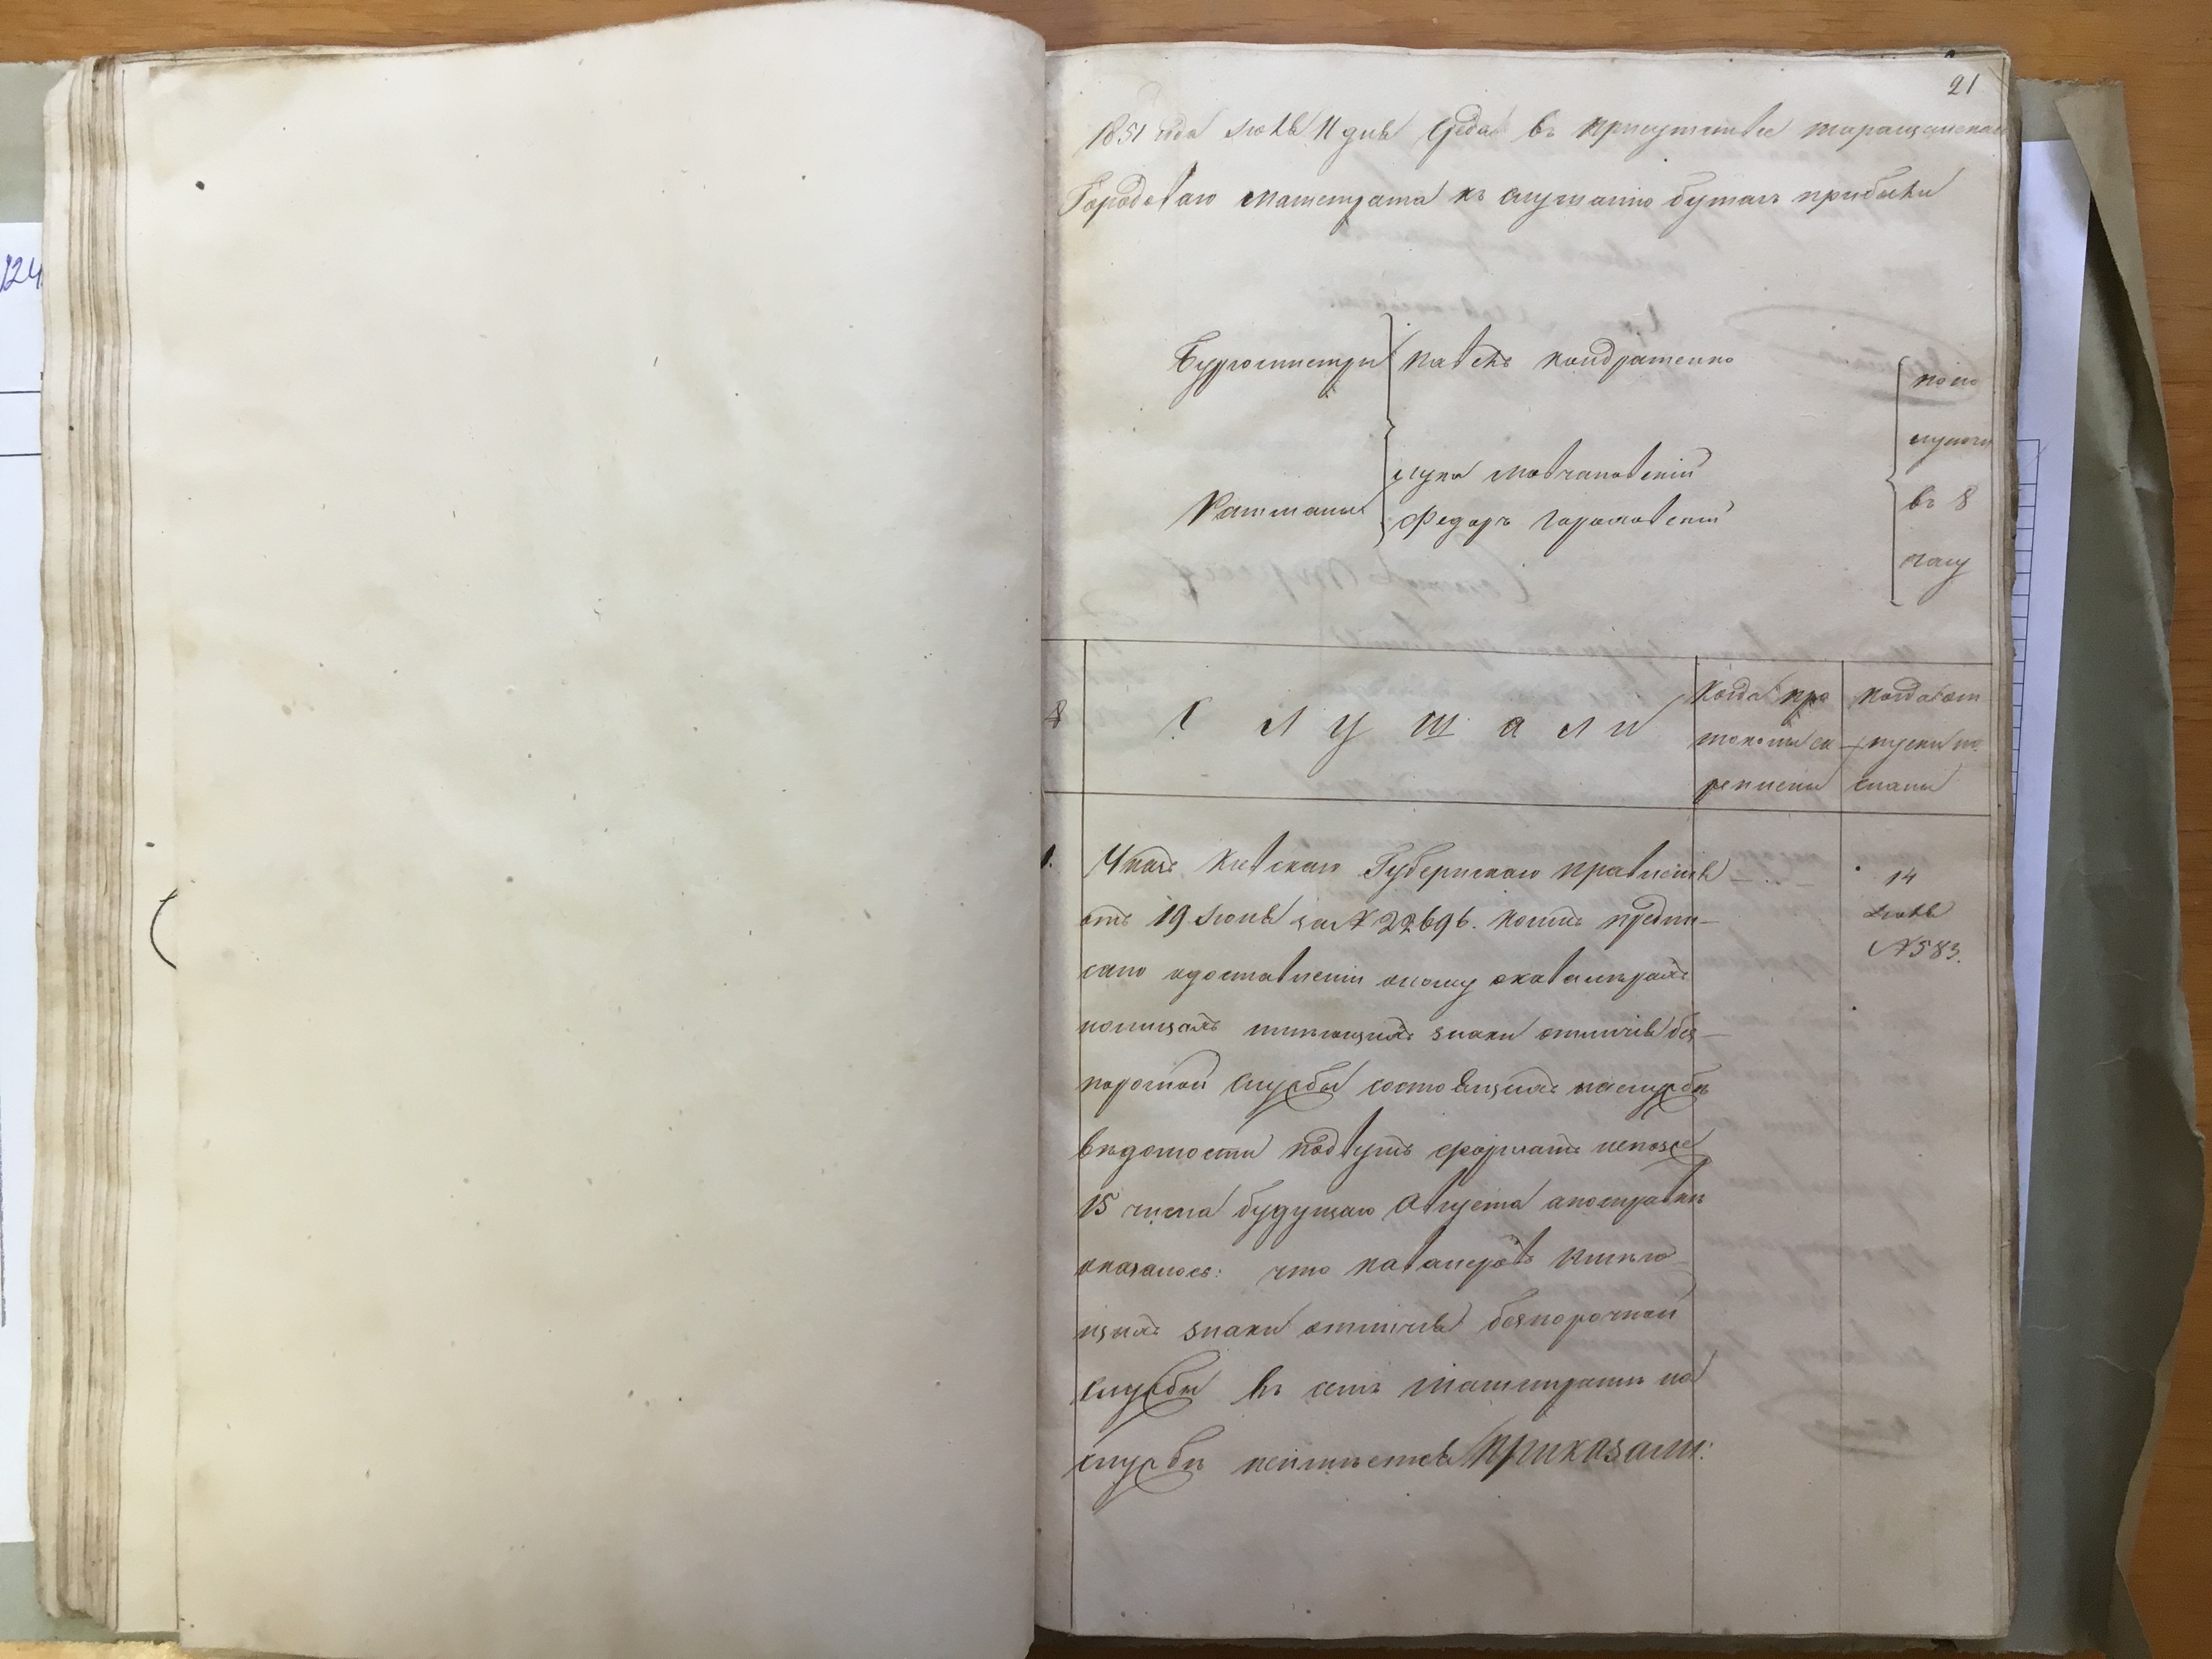 21
1851 года июля 11 дня Среда въ присутствіе таращанскаго
Городоваго магистрата къ слушанію бумагъ прибыли
Бургомистры павелъ кондратенко
Ратманы
лука мовчановскій
Федоръ Гороховскій
по по
луночи
въ 8
часу
№
Слушали
Когда про
токолы ск
реплены
когда от
пуски по
сланы
1. Указъ Кіевскаго Губернскаго правленія
отъ 19 Іюня за № 22696. коимъ предпи-
сано одоставленіи оному окавалерахъ
полицахъ имѣющихъ знаки отличія без-
порочной службы состоящихъ наслужбѣ
вѣдомости подвумъ формамъ непозже
15 числа будущаго Августа апосправкѣ
оказалось: что кавалеровъ имѣю-
щихъ знаки отличія безпорочной
службы въ семъ Магистратѣ на
службѣ неимѣется Приказали:
14
Іюля
№ 583.
124